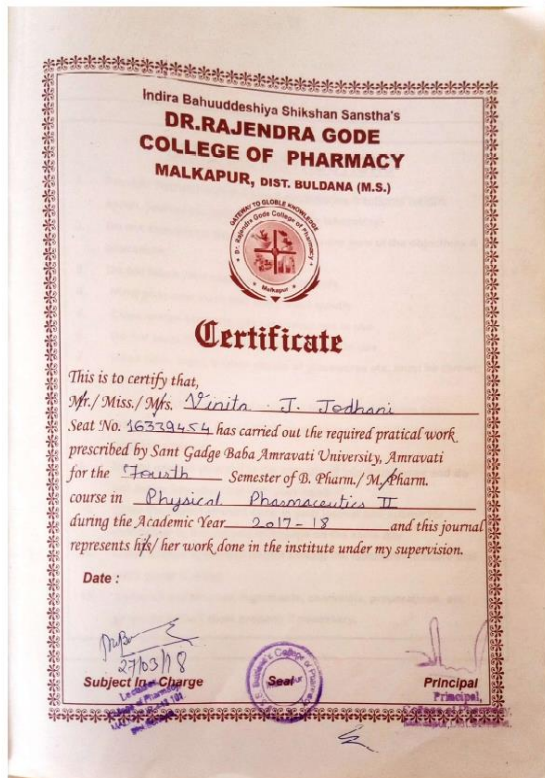 Indira Bahuuddeshiya Shikshan Sanstha's
DR.RAJENDRA GODE
COLLEGE OF PHARMACY
MALKAPUR, DIST. BULDANA (M.S.)
GATEWAY TO GLOBLE KNOWLEDGE
Dr. Rajendra Gode College of Pharmacy
Malkapur
Certificate
This is to certify that,
Mr./ Miss./ Mrs. Vinita J. Jodhani
Seat No. 16339454 has carried out the required pratical work
prescribed by Sant Gadge Baba Amravati University, Amravati
for the Fourth Semester of B. Pharm./ M. Pharm.
course in Physical Pharmaceutics II
during the Academic Year 2017-18 and this journal
represents his/ her work done in the institute under my supervision.
Date :
27/03/18
Subject In-Charge Seal Principal
Lecturer Principal,
College of Pharmacy